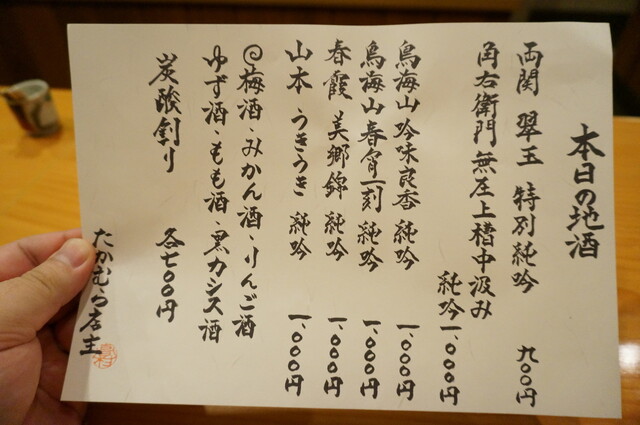 本日の地酒
両関 翠玉 特別純吟 九〇〇円
角右衛門 無圧上槽中汲み
純吟 一、〇〇〇円
鳥海山 吟味良香 純吟 一、〇〇〇円
鳥海山 春宵一刻 純吟 一、〇〇〇円
春霞 美郷錦 純吟 一、〇〇〇円
山本 うきうき 純吟 一、〇〇〇円
◎梅酒・みかん酒・りんご酒
ゆず酒・もも酒・黒カシス酒
炭酸割り 各七〇〇円
たかむら店主